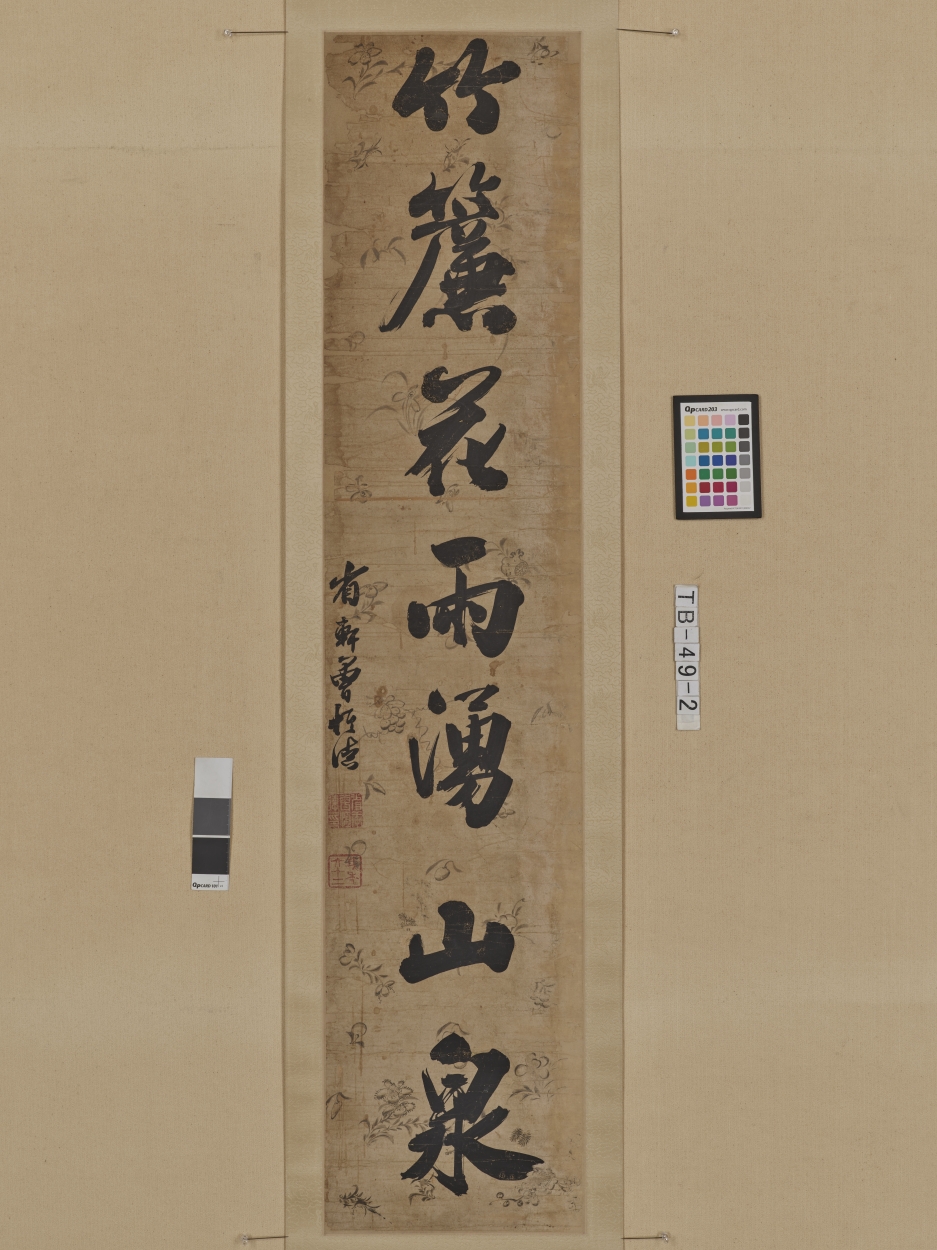 竹簾花雨湧山泉
省軒曾恆德
QpCARD 203
TB-49-2
QpCARD 101